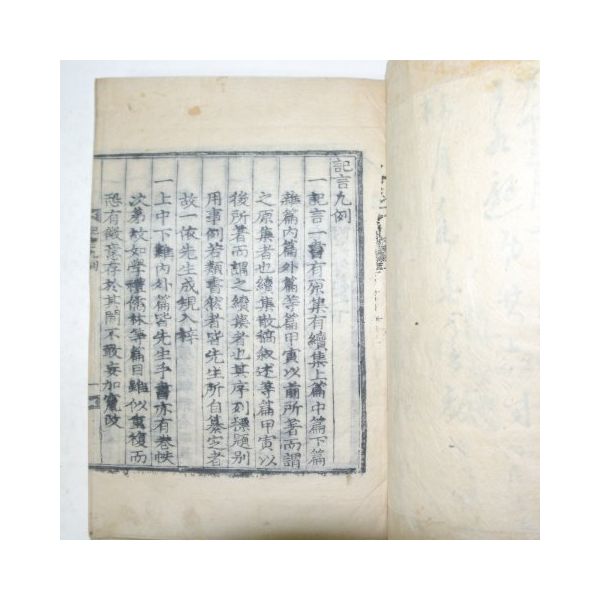 記言凡例
一記言一書有原集有續集上篇中篇下篇
雜篇內篇外篇等篇甲寅以前所著而謂
之原集者也續集散稿敘述等篇甲寅以
後所著而謂之續集者也其序列標題別
用事例若類書然者皆先生所自纂定者
故一依先生成規入梓
一上中下雜內外篇皆先生手書亦有卷帙
次第故如學禮儒林等篇目雖似重複而
恐有微意存於其間不敢妄加竄改